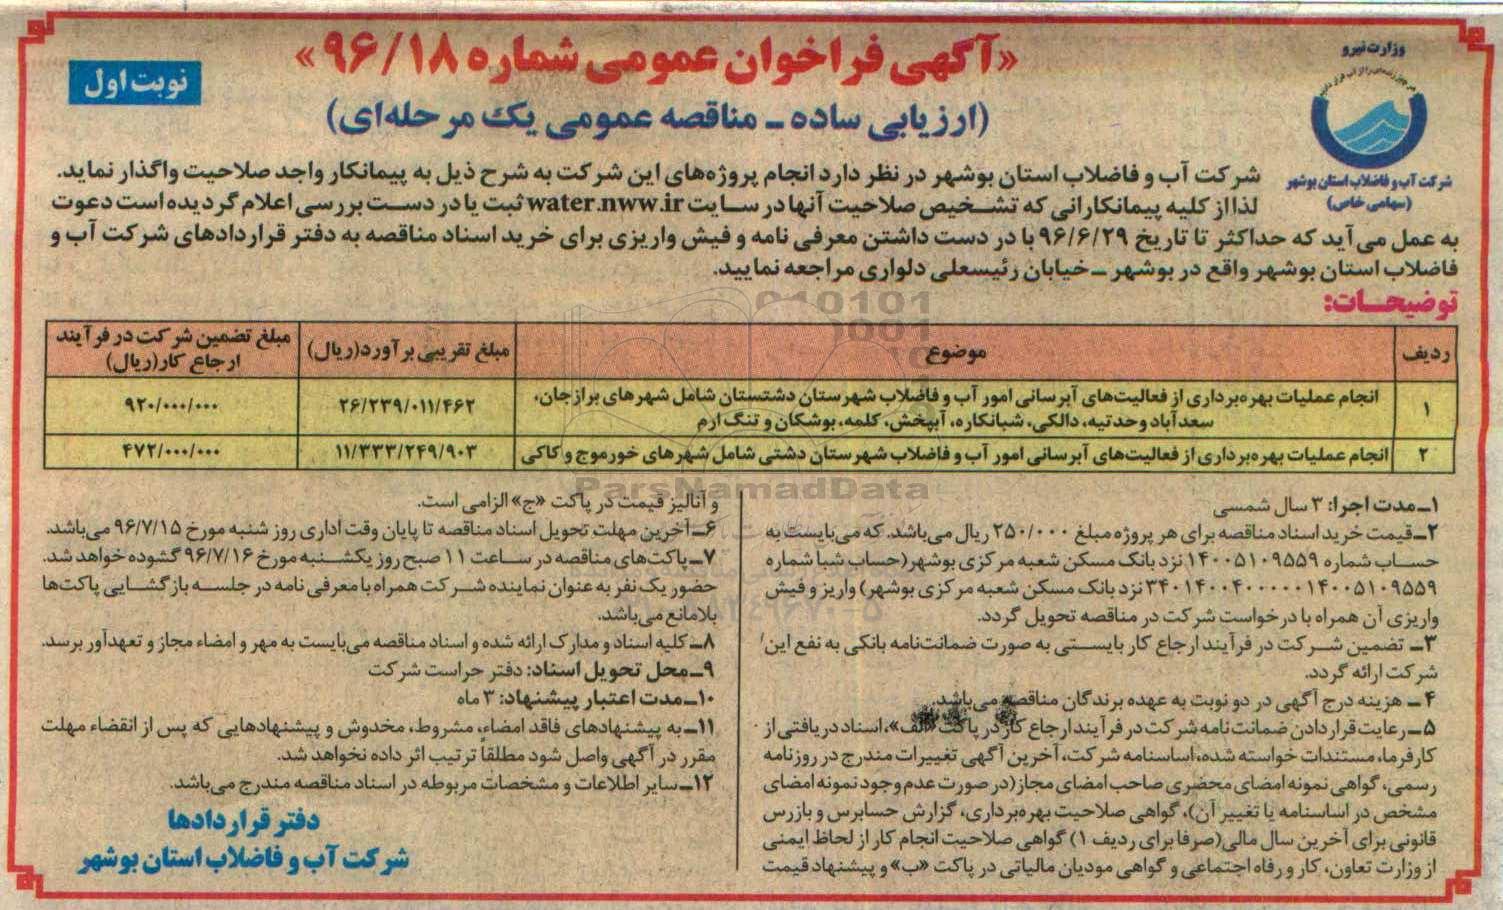 وزارت نیرو
شرکت آب و فاضلاب استان بوشهر
(سهامی خاص)
«آگهی فراخوان عمومی شماره ۹۶/۱۸»
نوبت اول
(ارزیابی ساده ـ مناقصه عمومی یک مرحله‌ای)
شرکت آب و فاضلاب استان بوشهر در نظر دارد انجام پروژه‌های این شرکت به شرح ذیل به پیمانکار واجد صلاحیت واگذار نماید.
لذا از کلیه پیمانکارانی که تشخیص صلاحیت آنها در سایت water.nww.ir ثبت یا در دست بررسی اعلام گردیده است دعوت
به عمل می‌آید که حداکثر تا تاریخ ۹۶/۶/۲۹ با در دست داشتن معرفی نامه و فیش واریزی برای خرید اسناد مناقصه به دفتر قراردادهای شرکت آب و
فاضلاب استان بوشهر واقع در بوشهر ـ خیابان رئیسعلی دلواری مراجعه نمایید.
توضیحات:
ردیف موضوع مبلغ تقریبی برآورد(ریال) مبلغ تضمین شرکت در فرآیند
ارجاع کار(ریال)
۱ انجام عملیات بهره‌برداری از فعالیت‌های آبرسانی امور آب و فاضلاب شهرستان دشتستان شامل شهرهای برازجان،
سعدآباد وحدتیه، دالکی، شبانکاره، آبپخش، کلمه، بوشکان و تنگ ارم ۲۶/۲۳۹/۰۱۱/۴۶۲ ۹۲۰/۰۰۰/۰۰۰
۲ انجام عملیات بهره‌برداری از فعالیت‌های آبرسانی امور آب و فاضلاب شهرستان دشتی شامل شهرهای خورموج و کاکی ۱۱/۳۳۳/۲۴۹/۹۰۳ ۴۷۲/۰۰۰/۰۰۰
ParsNamadData
۱ـ مدت اجرا: ۳ سال شمسی
۲ـ قیمت خرید اسناد مناقصه برای هر پروژه مبلغ ۲۵۰/۰۰۰ ریال می‌باشد. که می‌بایست به
حساب شماره ۱۴۰۰۵۱۰۹۵۵۹ نزد بانک مسکن شعبه مرکزی بوشهر(حساب شبا شماره
۳۴۰۱۴۰۰۴۰۰۰۰۰۱۴۰۰۵۱۰۹۵۵۹ نزد بانک مسکن شعبه مرکزی بوشهر) واریز و فیش
واریزی آن همراه با درخواست شرکت در مناقصه تحویل گردد.
۳ـ تضمین شرکت در فرآیند ارجاع کار بایستی به صورت ضمانت‌نامه بانکی به نفع این
شرکت ارائه گردد.
۴ـ هزینه درج آگهی در دو نوبت به عهده برندگان مناقصه می‌باشد.
۵ـ رعایت قرار دادن ضمانت نامه شرکت در فرآیند ارجاع کار در پاکت «الف»، اسناد دریافتی از
کارفرما، مستندات خواسته شده، اساسنامه شرکت، آخرین آگهی تغییرات مندرج در روزنامه
رسمی، گواهی نمونه امضای محضری صاحب امضای مجاز(در صورت عدم وجود نمونه امضای
مشخص در اساسنامه یا تغییر آن)، گواهی صلاحیت بهره‌برداری، گزارش حسابرس و بازرس
قانونی برای آخرین سال مالی(صرفا برای ردیف ۱) گواهی صلاحیت انجام کار از لحاظ ایمنی
از وزارت تعاون، کار و رفاه اجتماعی و گواهی مودیان مالیاتی در پاکت «ب» و پیشنهاد قیمت
و آنالیز قیمت در پاکت «ج» الزامی است.
۶ـ آخرین مهلت تحویل اسناد مناقصه تا پایان وقت اداری روز شنبه مورخ ۹۶/۷/۱۵ می‌باشد.
۷ـ پاکت‌های مناقصه در ساعت ۱۱ صبح روز یکشنبه مورخ ۹۶/۷/۱۶ گشوده خواهد شد.
حضور یک نفر به عنوان نماینده شرکت همراه با معرفی نامه در جلسه بازگشایی پاکت‌ها
بلامانع می‌باشد.
۸ـ کلیه اسناد و مدارک ارائه شده و اسناد مناقصه می‌بایست به مهر و امضاء مجاز و تعهدآور برسد.
۹ـ محل تحویل اسناد: دفتر حراست شرکت
۱۰ـ مدت اعتبار پیشنهاد: ۳ ماه
۱۱ـ به پیشنهادهای فاقد امضاء، مشروط، مخدوش و پیشنهادهایی که پس از انقضاء مهلت
مقرر در آگهی واصل شود مطلقاً ترتیب اثر داده نخواهد شد.
۱۲ـ سایر اطلاعات و مشخصات مربوطه در اسناد مناقصه مندرج می‌باشد.
دفتر قراردادها
شرکت آب و فاضلاب استان بوشهر